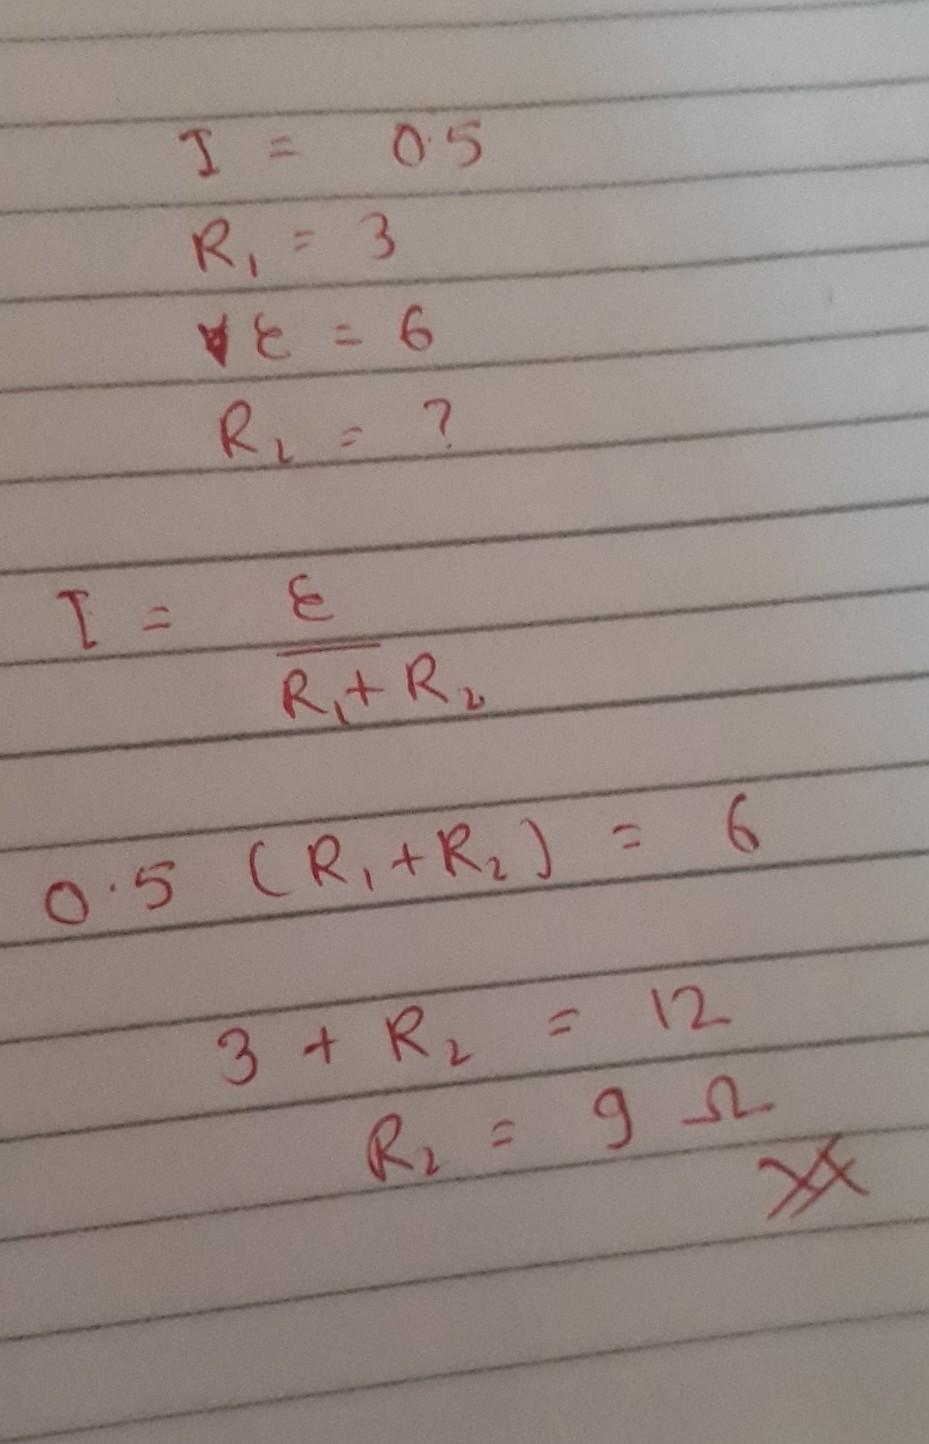 I = 0.5
R₁ = 3
ε = 6
R₂ = ?
I = ε
R₁ + R₂
0.5 (R₁ + R₂) = 6
3 + R₂ = 12
R₂ = 9 Ω